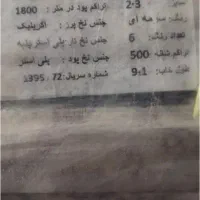 2·3 تراکم پود در متر : 1800
رنگ: سرمه ای جنس نخ پرز : اکریلیک
تعداد رنگ: 6 جنس نخ تار: پلی استر پنبه
تراکم شانه: 500 جنس نخ پود : پلی استر
طول خاب: 9:1 شماره سریال: 72 / 1395